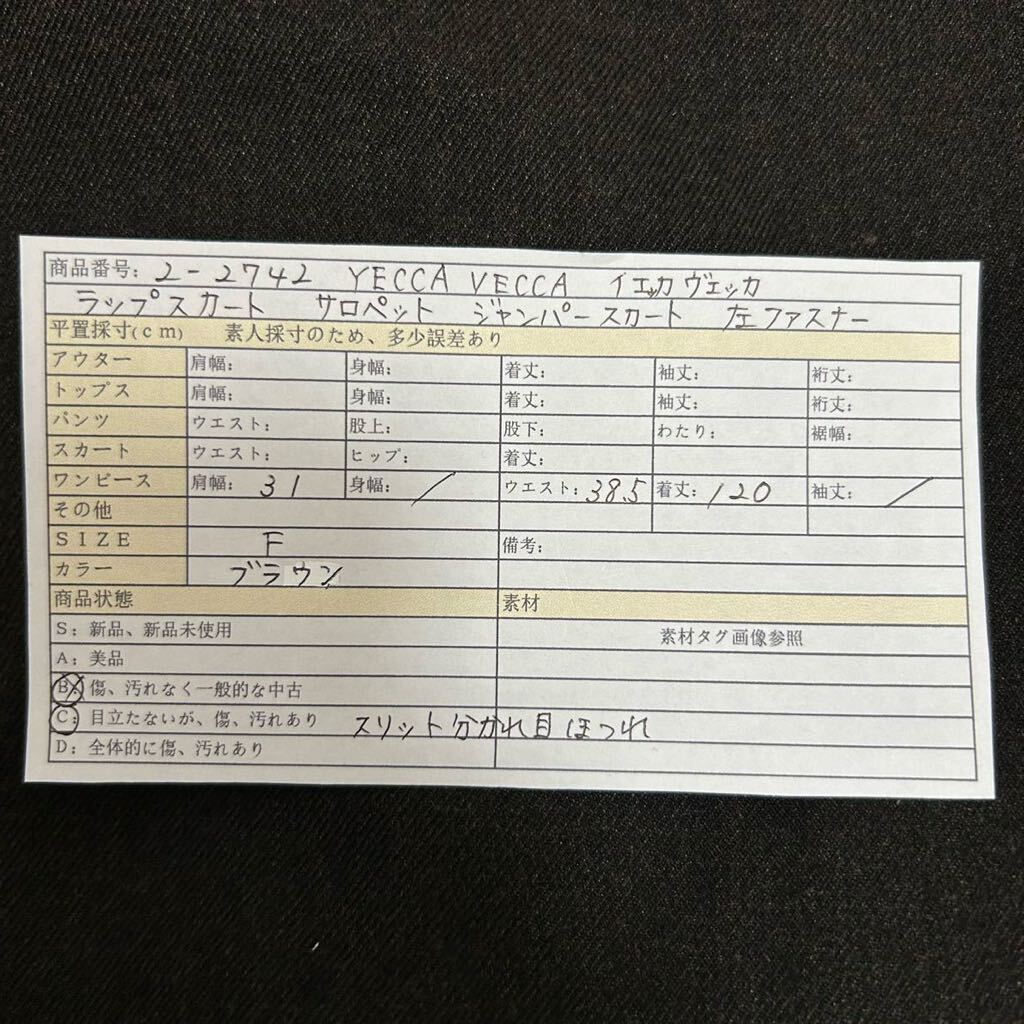 商品番号: 2-2742 YECCA VECCA イエッカ ヴェッカ
ラップスカート サロペット ジャンパースカート 左ファスナー
平置採寸(cm) 素人採寸のため、多少誤差あり
アウター 肩幅: 身幅: 着丈: 袖丈: 裄丈:
トップス 肩幅: 身幅: 着丈: 袖丈: 裄丈:
パンツ ウエスト: 股上: 股下: わたり: 裾幅:
スカート ウエスト: ヒップ: 着丈:
ワンピース 肩幅: 31 身幅: / ウエスト: 38.5 着丈: 120 袖丈: /
その他
SIZE F 備考:
カラー ブラウン
商品状態 素材
S: 新品、新品未使用 素材タグ画像参照
A: 美品
B: 傷、汚れなく一般的な中古
C: 目立たないが、傷、汚れあり スリット分かれ目ほつれ
D: 全体的に傷、汚れあり